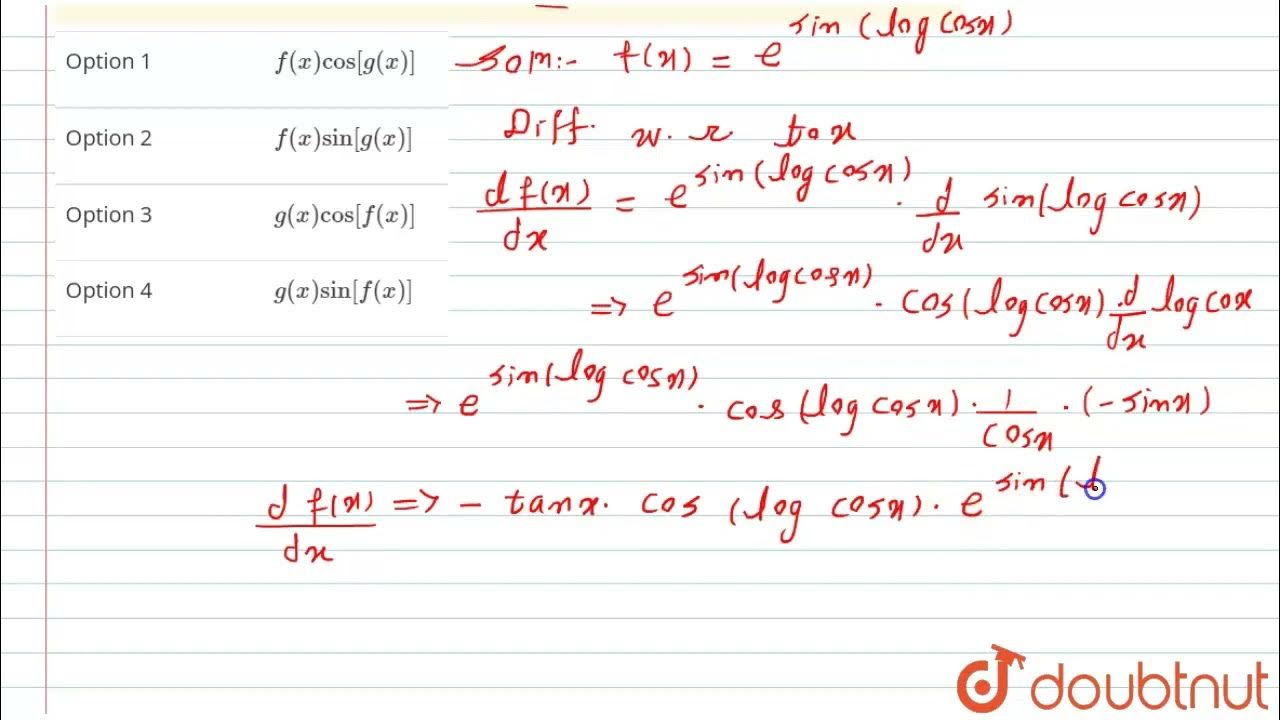 Option 1 f(x)cos[g(x)]
Option 2 f(x)sin[g(x)]
Option 3 g(x)cos[f(x)]
Option 4 g(x)sin[f(x)]
Soln:- f(x) = e^sin(log cosx)
Diff. w.r to x
d f(x)/dx = e^sin(log cosx) · d/dx sin(log cosx)
=> e^sin(log cosx) · cos(log cosx) · d/dx log cosx
=> e^sin(log cosx) · cos(log cosx) · 1/cosx · (-sinx)
d f(x)/dx => - tanx · cos (log cosx) · e^sin(l
doubtnut